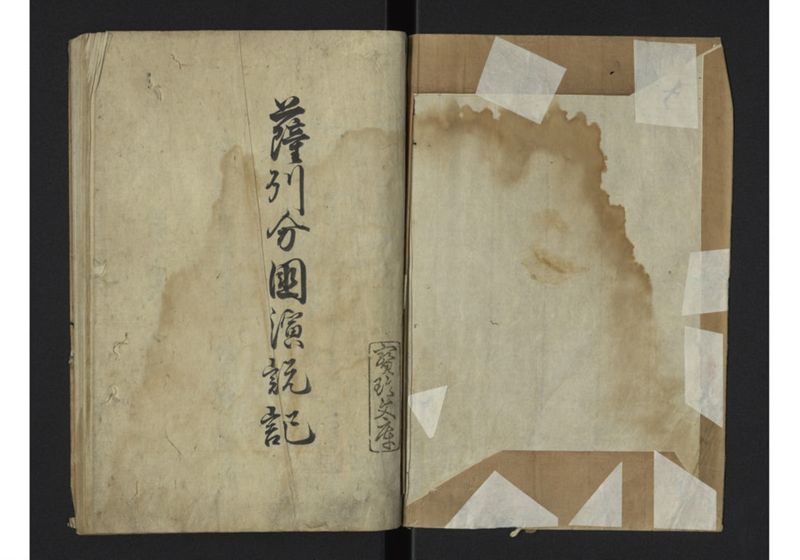 薩州分國演説記
寶玲文庫